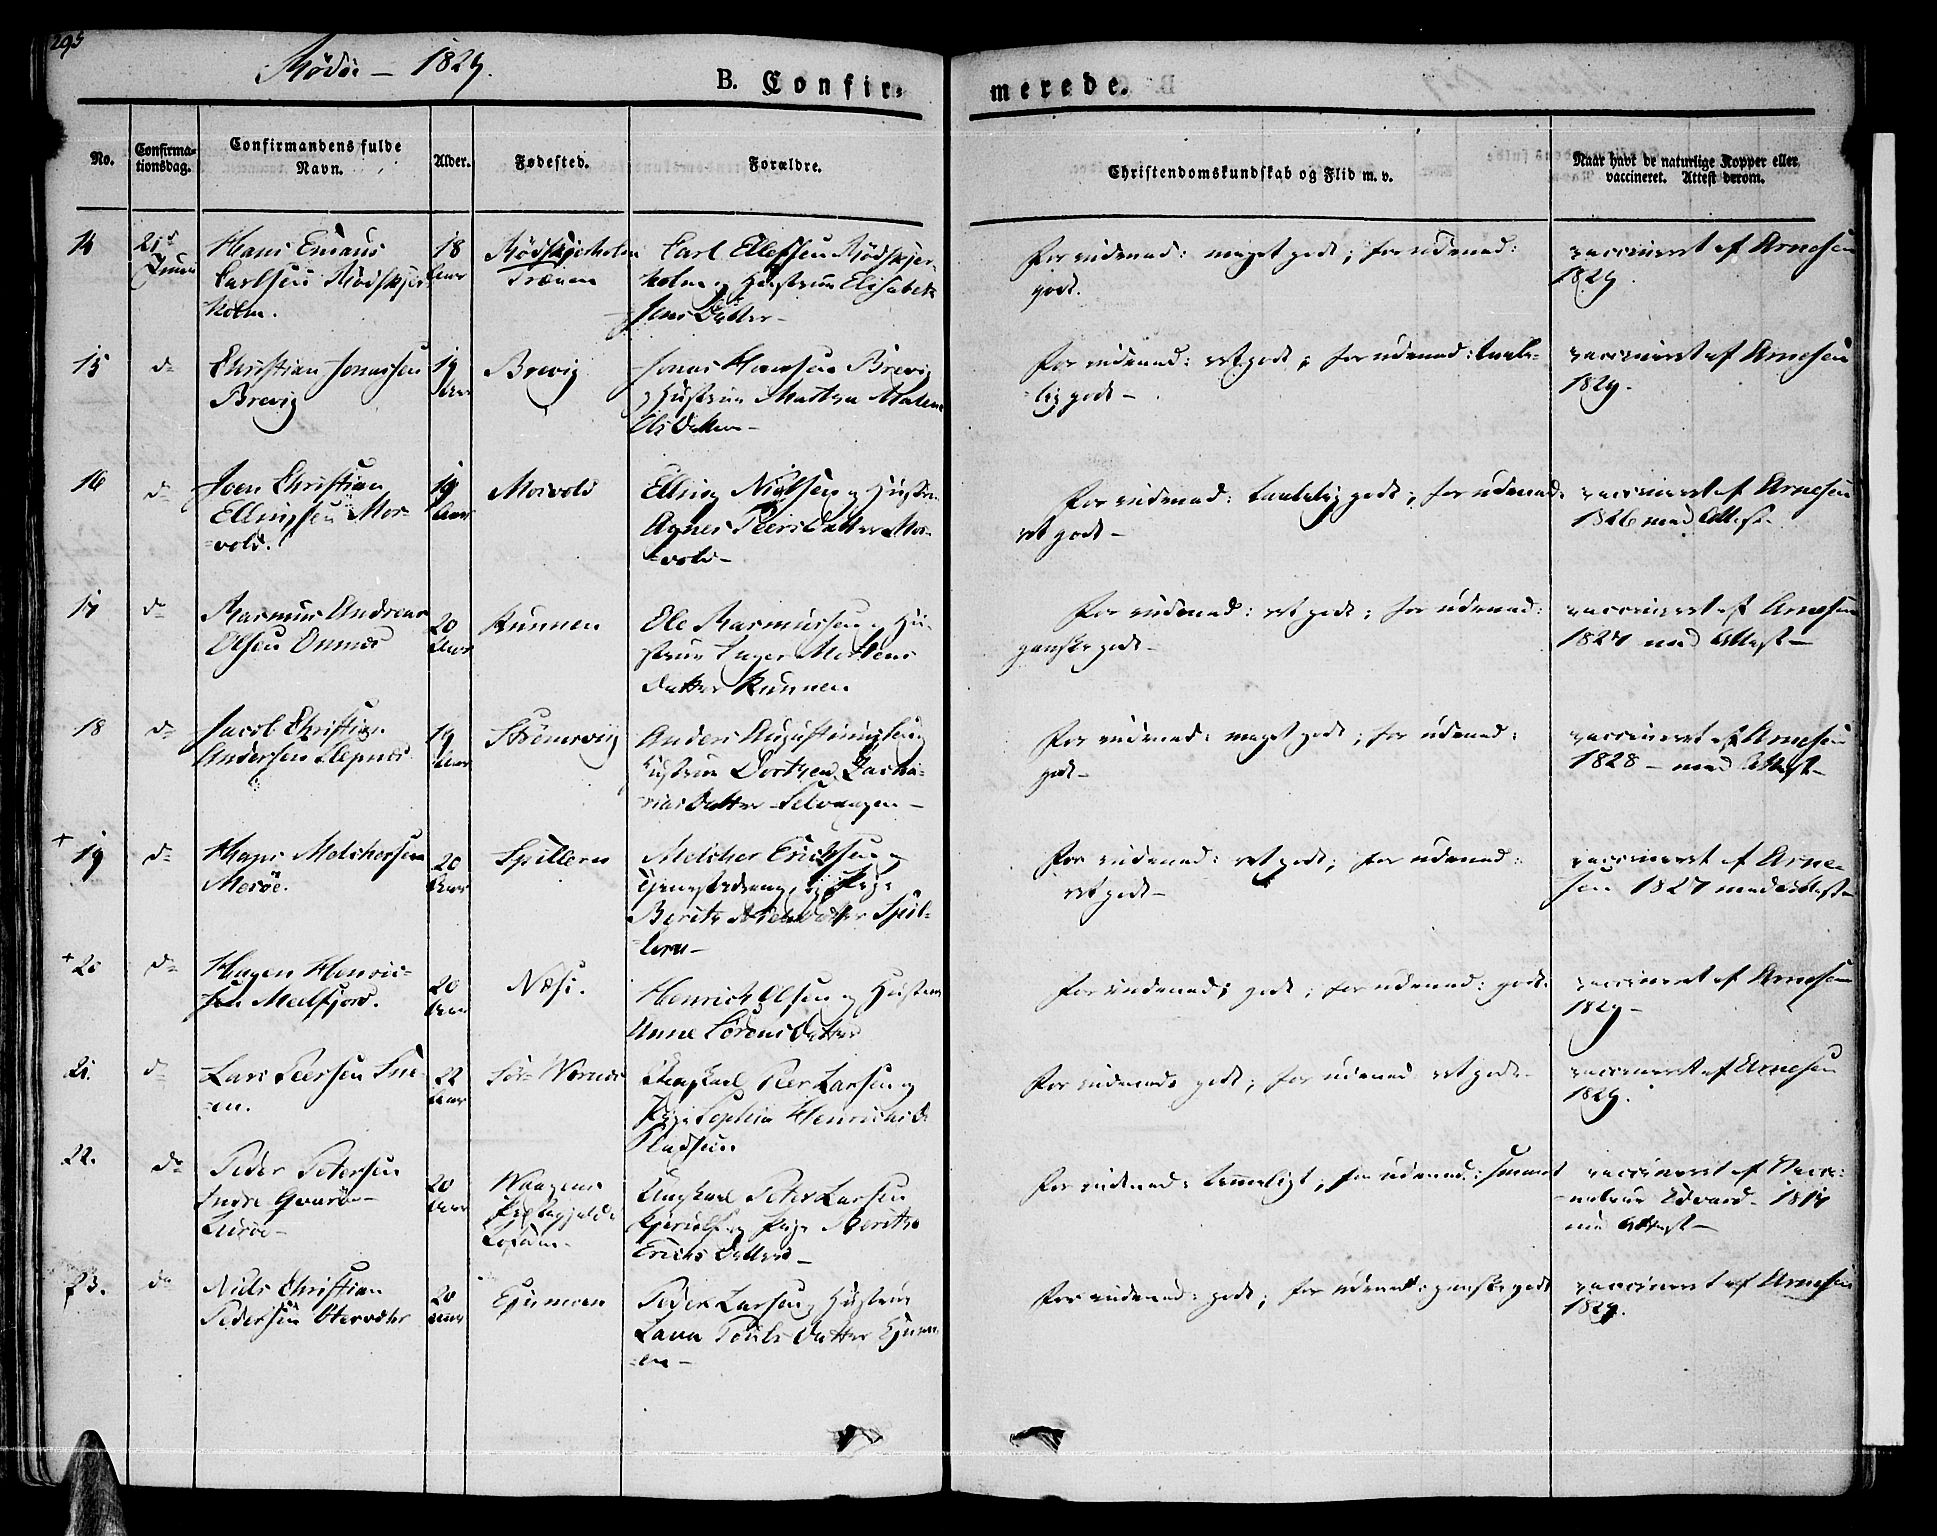 295
Rødøe – 1829.
B. Confir-
merede.
No.
Confirma-
tionsdag.
Confirmandens fulde
Navn.
Alder.
Fødested.
Forældre.
Christendomskundskab og Flid m. v.
Naar havt de naturlige Kopper eller
vaccineret. Attest derom.
14
21
Junii
Hans
Carlsen Rødskjer
holm.
18
Aar
Rødskjerholm
Trænen
Carl Ellefsen Rødskjer-
holm og Hustrue Elisabeth
Jens Datter –
For indenad: meget godt; for udenad:
godt.
vaccineret af Arnesen
1829
15
do
Christian Jonassen
Brevig
19
Aar
Brevig
Jonas Hansen Brevig
og Hustrue Martha Malene
Datter –
For indenad: ret godt; for udenad: taale-
lig godt –
vaccineret af Arnesen
1829.
16
do
Joen Christian
Ellingsen Mor-
=vold.
19
Aar
Morvold
Elling Nielsen og Hustrue
Agnes Peers Datter Mor-
=vold –
For indenad: taalelig godt; for udenad:
ret godt –
vaccineret af Arnesen
1826 med Attest
17
do
Rasmus Andreas
Olsen Onnes
20
Aar
Kunnen
Ole Rasmussen og Hu-
strue Inger Mortens
Datter Kunnen
For indenad: ret godt; for udenad:
ganske godt –
vaccineret af Arnesen
1827 med Attest –
18
do
Jacob Christian
Andersen Selsnes
19
Aar
Strømsvig
Anders Augustinusen og
Hustrue Dorthea Zacha-
rias Datter Selvaagen –
For indenad: meget godt; for udenad:
godt –
vaccineret af Arnesen
1828 – med Attest –
+ 19
do
Hans Melchersen
Mesøe.
20
Aar
Spilleren
Melcher Erichsen og
Pige
Berith Datter Spil-
=leren –
For indenad: ret godt; for udenad:
ret godt –
vaccineret af Arne-
sen 1827 med Attest –
+ 20
do
Hagen Henric-
sen Melfjord.
20
Aar
Næss.
Henrich Olsen og Hustrue
Anne Sørens Datter
For indenad: godt; for udenad: godt.
vaccineret af Arnesen
1829 –
21.
do
Lars Peersen
=en.
22
Aar
Sør-Værnes
Ungkarl Peer Larsen og
Pige Sophia Henrichs D.
For indenad: godt; for udenad: ret godt –
vaccineret af Arnesen
1829.
22.
do
Peder Petersen
Indre Qvarøe
Lurøe –
20
Aar
Waagens
Præstegjeld i
Lofoden –
Ungkarl Peter Larsen
og Pige Berithe
Erichs Datter –
For indenad: temmeligt; for udenad: smaat
vaccineret af Vacci-
nateur Edvard 1817
Attest –
23.
do
Niels Christian
Pedersen Otervær
20
Aar
Peder Larsen og Hustrue
Lava Pouls Datter
=en –
For indenad: godt; for udenad: ganske godt
vaccineret af Arnesen
1829.